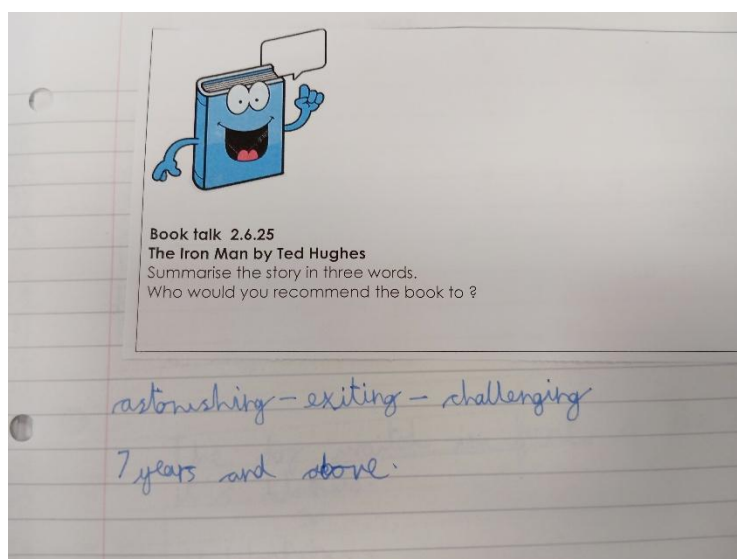 Book talk 2.6.25
The Iron Man by Ted Hughes
Summarise the story in three words.
Who would you recommend the book to ?
astonishing - exiting - challenging
7 years and above.